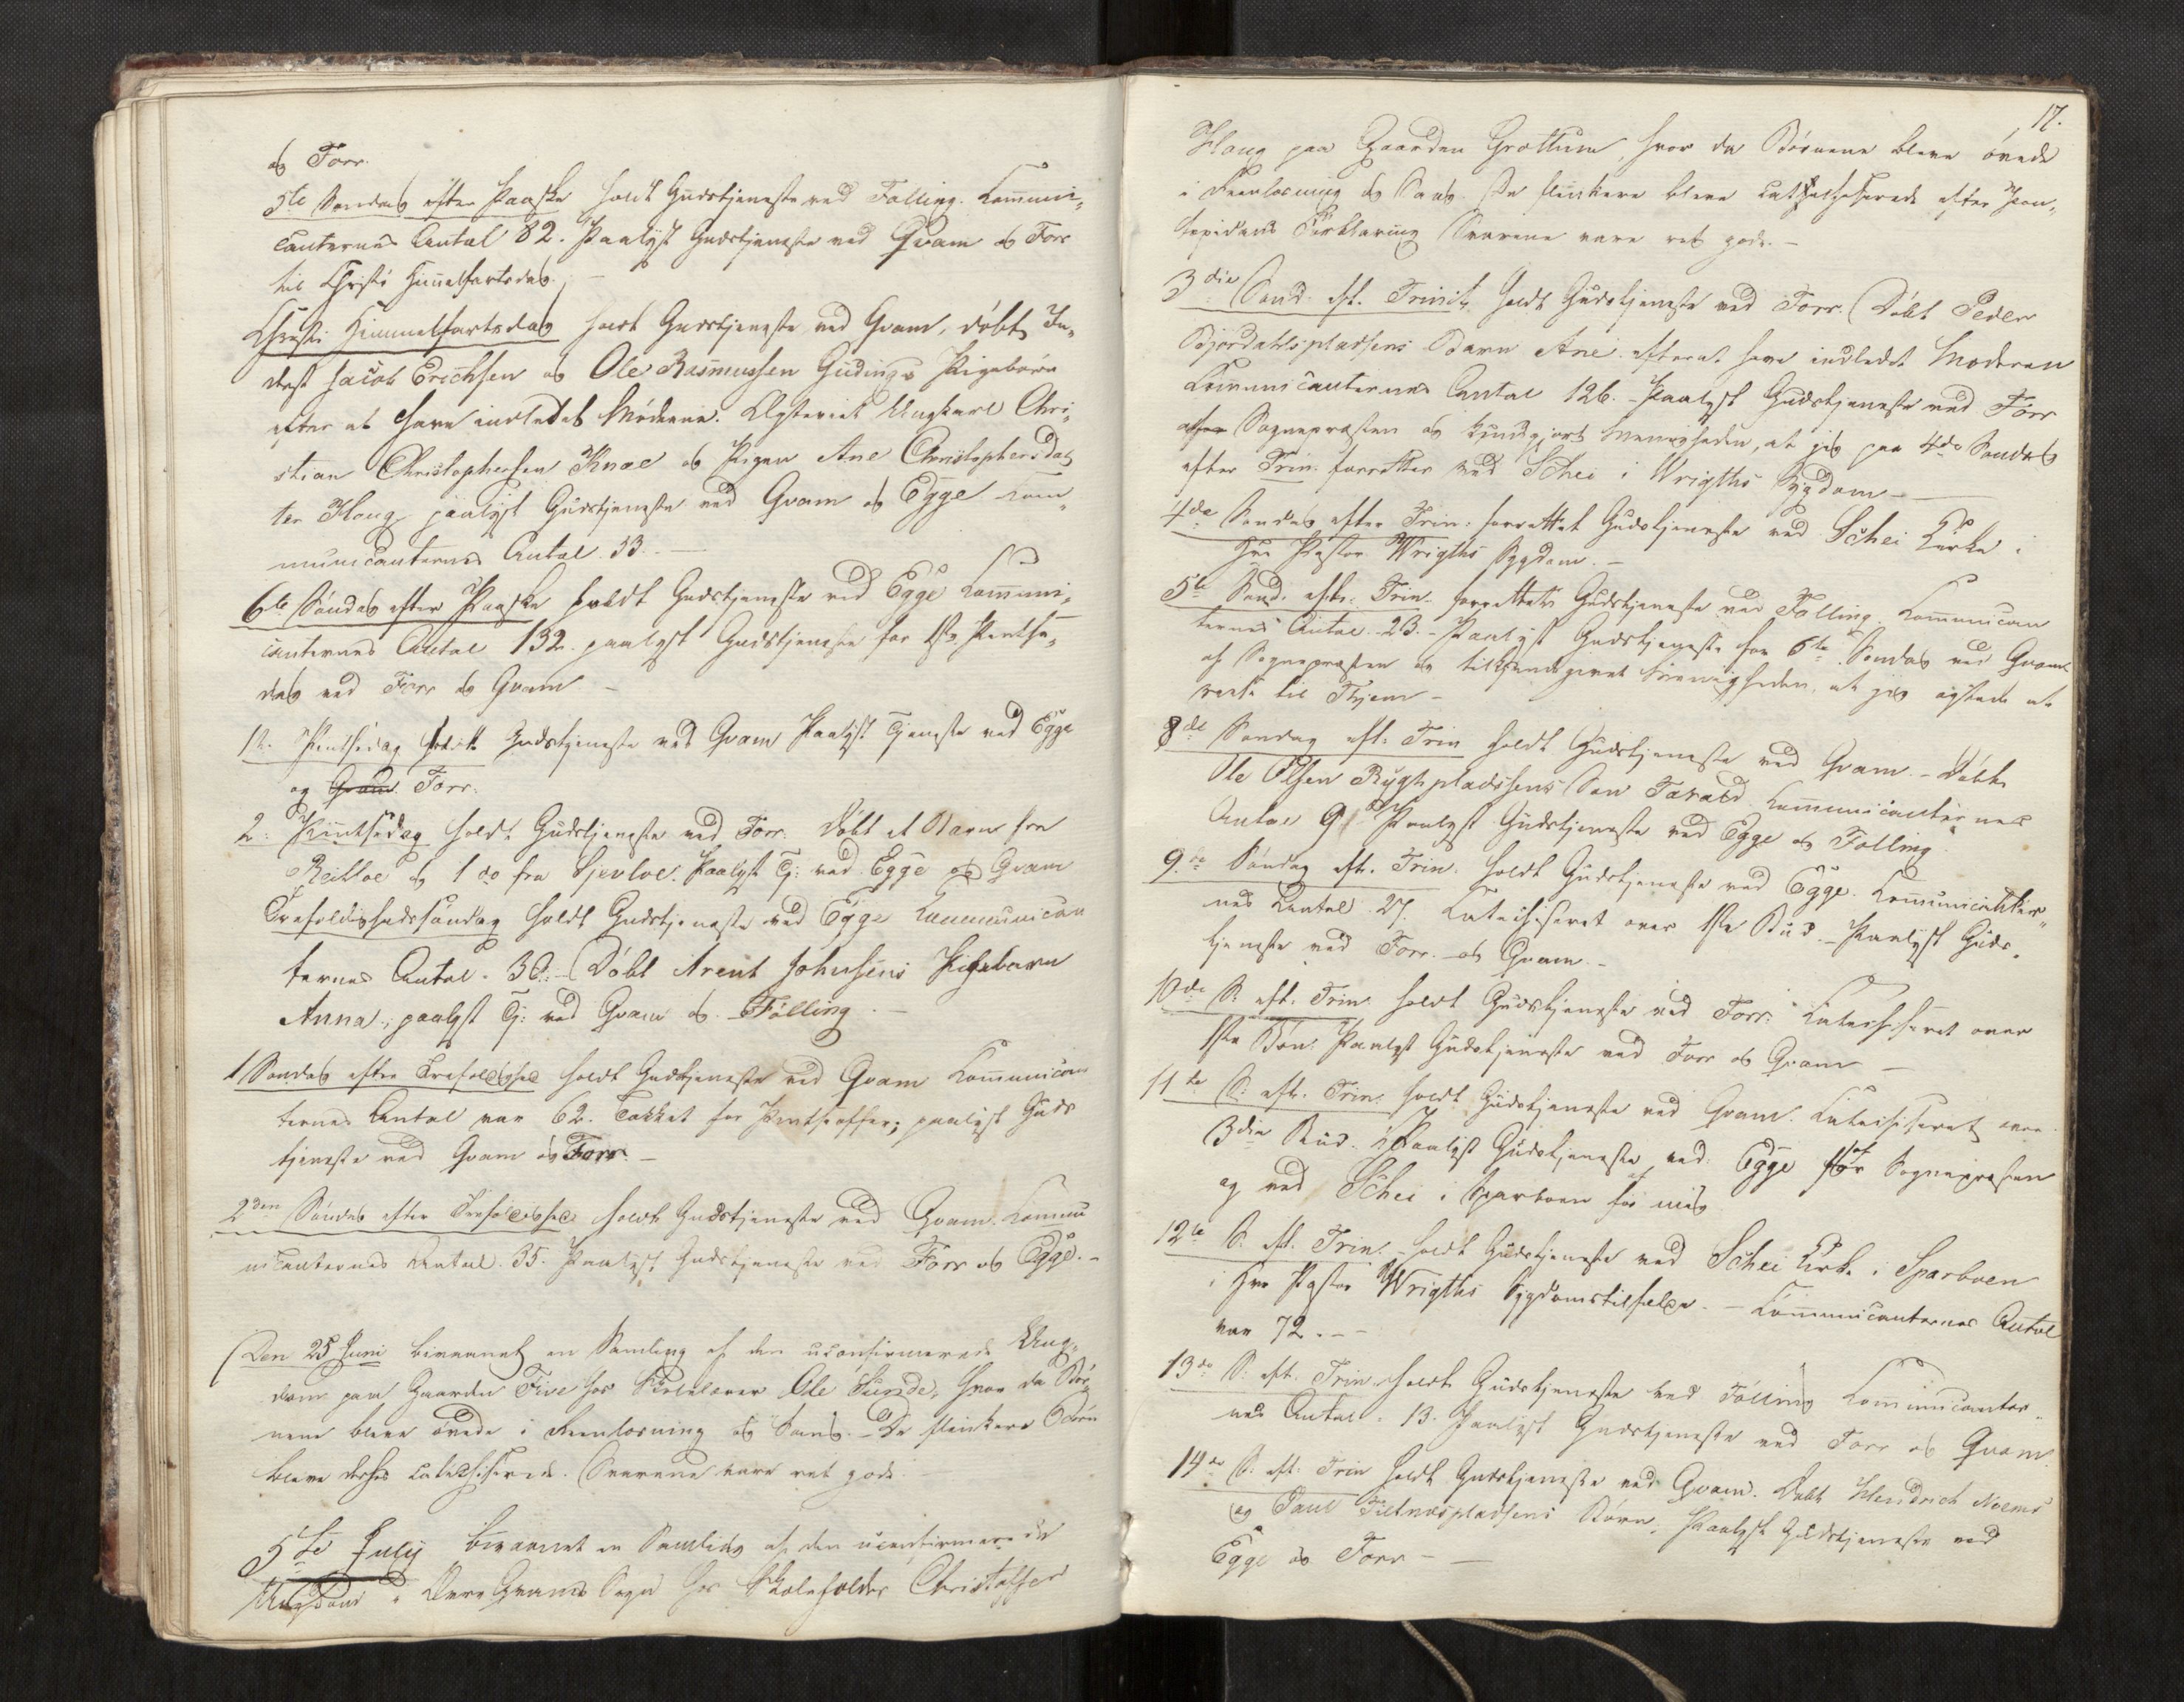 og Forr.
5te Søndag efter Paaske holdt Gudstjeneste ved Følling. Communi„
canternes Antal 82. Paalyst Gudstjeneste ved Qvam og Forr
til Christi Himmelfartsdag.
Christi Himmelfartsdag holdt Gudstjeneste ved Qvam, døbt
Jacob Erichsen og Ole Rasmussen Gudings Pigebørn
efter at have indledet Mødrene. Ungkarl Chri„
stian Christophersen Knoe og Pigen Ane Christophersdat„
ter Haug paalyst Gudstjeneste ved Qvam og Egge Com„
municanternes Antal 33. —
6te Søndag efter Paaske holdt Gudstjeneste ved Egge Communi„
canternes Antal 132. paalyst Gudstjeneste for 1ste Pintse„
dag ved Forr og Qvam —
1te Pintsedag holdt Gudstjeneste ved Qvam Paalyst Tjeneste ved Egge
og Qvam Forr.
2: Pintsedag holdt Gudstjeneste ved Forr. Døbt et Barn fra
Reitloe og 1 do fra Paalyst Tj: ved Egge og Qvam
Trefoldighedssøndag holdt Gudstjeneste ved Egge Communican
ternes Antal. 30. – Døbt Arent Johnsens Pigebarn
Anna, paalyst Tj: ved Qvam og Følling. —
1 Søndag efter Trefoldighed holdt Gudstjeneste ved Qvam Communican
ternes Antal var 62. Takket for Pintseoffer; paalyst Guds
tjeneste ved Qvam og Forr. —
2den Søndag efter Trefoldighed holdt Gudstjeneste ved Qvam. Commu
nicanternes Antal. 35. Paalyst Gudstjeneste ved Forr og Egge. –
Den 25 Juni bivaanet en Samling af den uconfirmerede Ung„
dom paa Gaarden Five hos Skolelærer Ole Sunde, hvor da Bør„
nene bleve øvede i Reenlæsning og Sang. – De flinkere Børn
bleve catechiserede. Svarene vare ret gode.
5te July bivaanet en Samling af den uconfirmerede
Ungdom i Qvams Sogn hos Skoleholder Christopher
17.
Haug paa Gaarden Grøttum, hvor da Børnene bleve øvede
i Reenlæsning og Sang. De flinkere bleve catechiserede efter Pon„
topidans Forklaring Svarene vare ret gode. –
3die Sønd: eft. Trinit. holdt Gudstjeneste ved Forr. Døbt Peder
Bjørdahlspladsens Barn Ane. efter at have indledet Moderen
Communicanternes Antal 126. – Paalyst Gudstjeneste ved Forr
Sognepræsten og kundgjort Menigheden, at jeg paa 4de Søndag
efter Trin. forretter ved Schei i Wrigths Sygdom — —
4de Søndag efter Trin: forrettet Gudstjeneste ved Schei Kirke i
Hr Pastor Wrigths Sygdom. –
5te Sønd: eftr. Trin. forrettet Gudstjeneste ved Følling. Communican
ternes Antal 23. – Paalyst Gudstjeneste for 6te Søndag ved Qvam
af Sognepræsten og tilkjendegivet Menigheden, at jeg agtede at
reise til Thjem –
8de Søndag eft: Trin holdt Gudstjeneste ved Qvam – Døbt
Ole Olsen Rygh pladsens Søn Tarald Communicanternes
Antal 9 Paalyst Gudstjeneste ved Egge og Følling.
9de Søndag eft. Trin. holdt Gudstjeneste ved Egge. Communicanter„
nes Antal 27. Catechiseret over 1ste Bud – Paalyst Guds„
tjeneste ved Forr. – og Qvam. –
10de S: eft. Trin. holdt Gudstjeneste ved Forr: Catechiseret over
1ste Bøn. Paalyst Gudstjeneste ved Forr og Qvam —
11te S: eft. Trin: holdt Gudstjeneste ved Qvam. Catechiseret over
3die Bud. Paalyst Gudstjeneste ved Egge af Sognepræsten
og ved Schei i Sparboen for mig
12te S: eft. Trin. – holdt Gudstjeneste ved Schei Kirke i Sparboen
i Hr Pastor Wrigths Sygdomstilfælde. – Communicanternes Antal
var 72. – –
13de S: eft. Trin. holdt Gudstjeneste ved Følling Communicanter„
nes Antal: 13. Paalyst Gudstjeneste ved Forr og Qvam.
14de S: eft: Trin holdt Gudstjeneste ved Qvam. Døbt Hendrich Moems
og Paul Børn. Paalyst Gudstjeneste ved
Egge og Forr – —